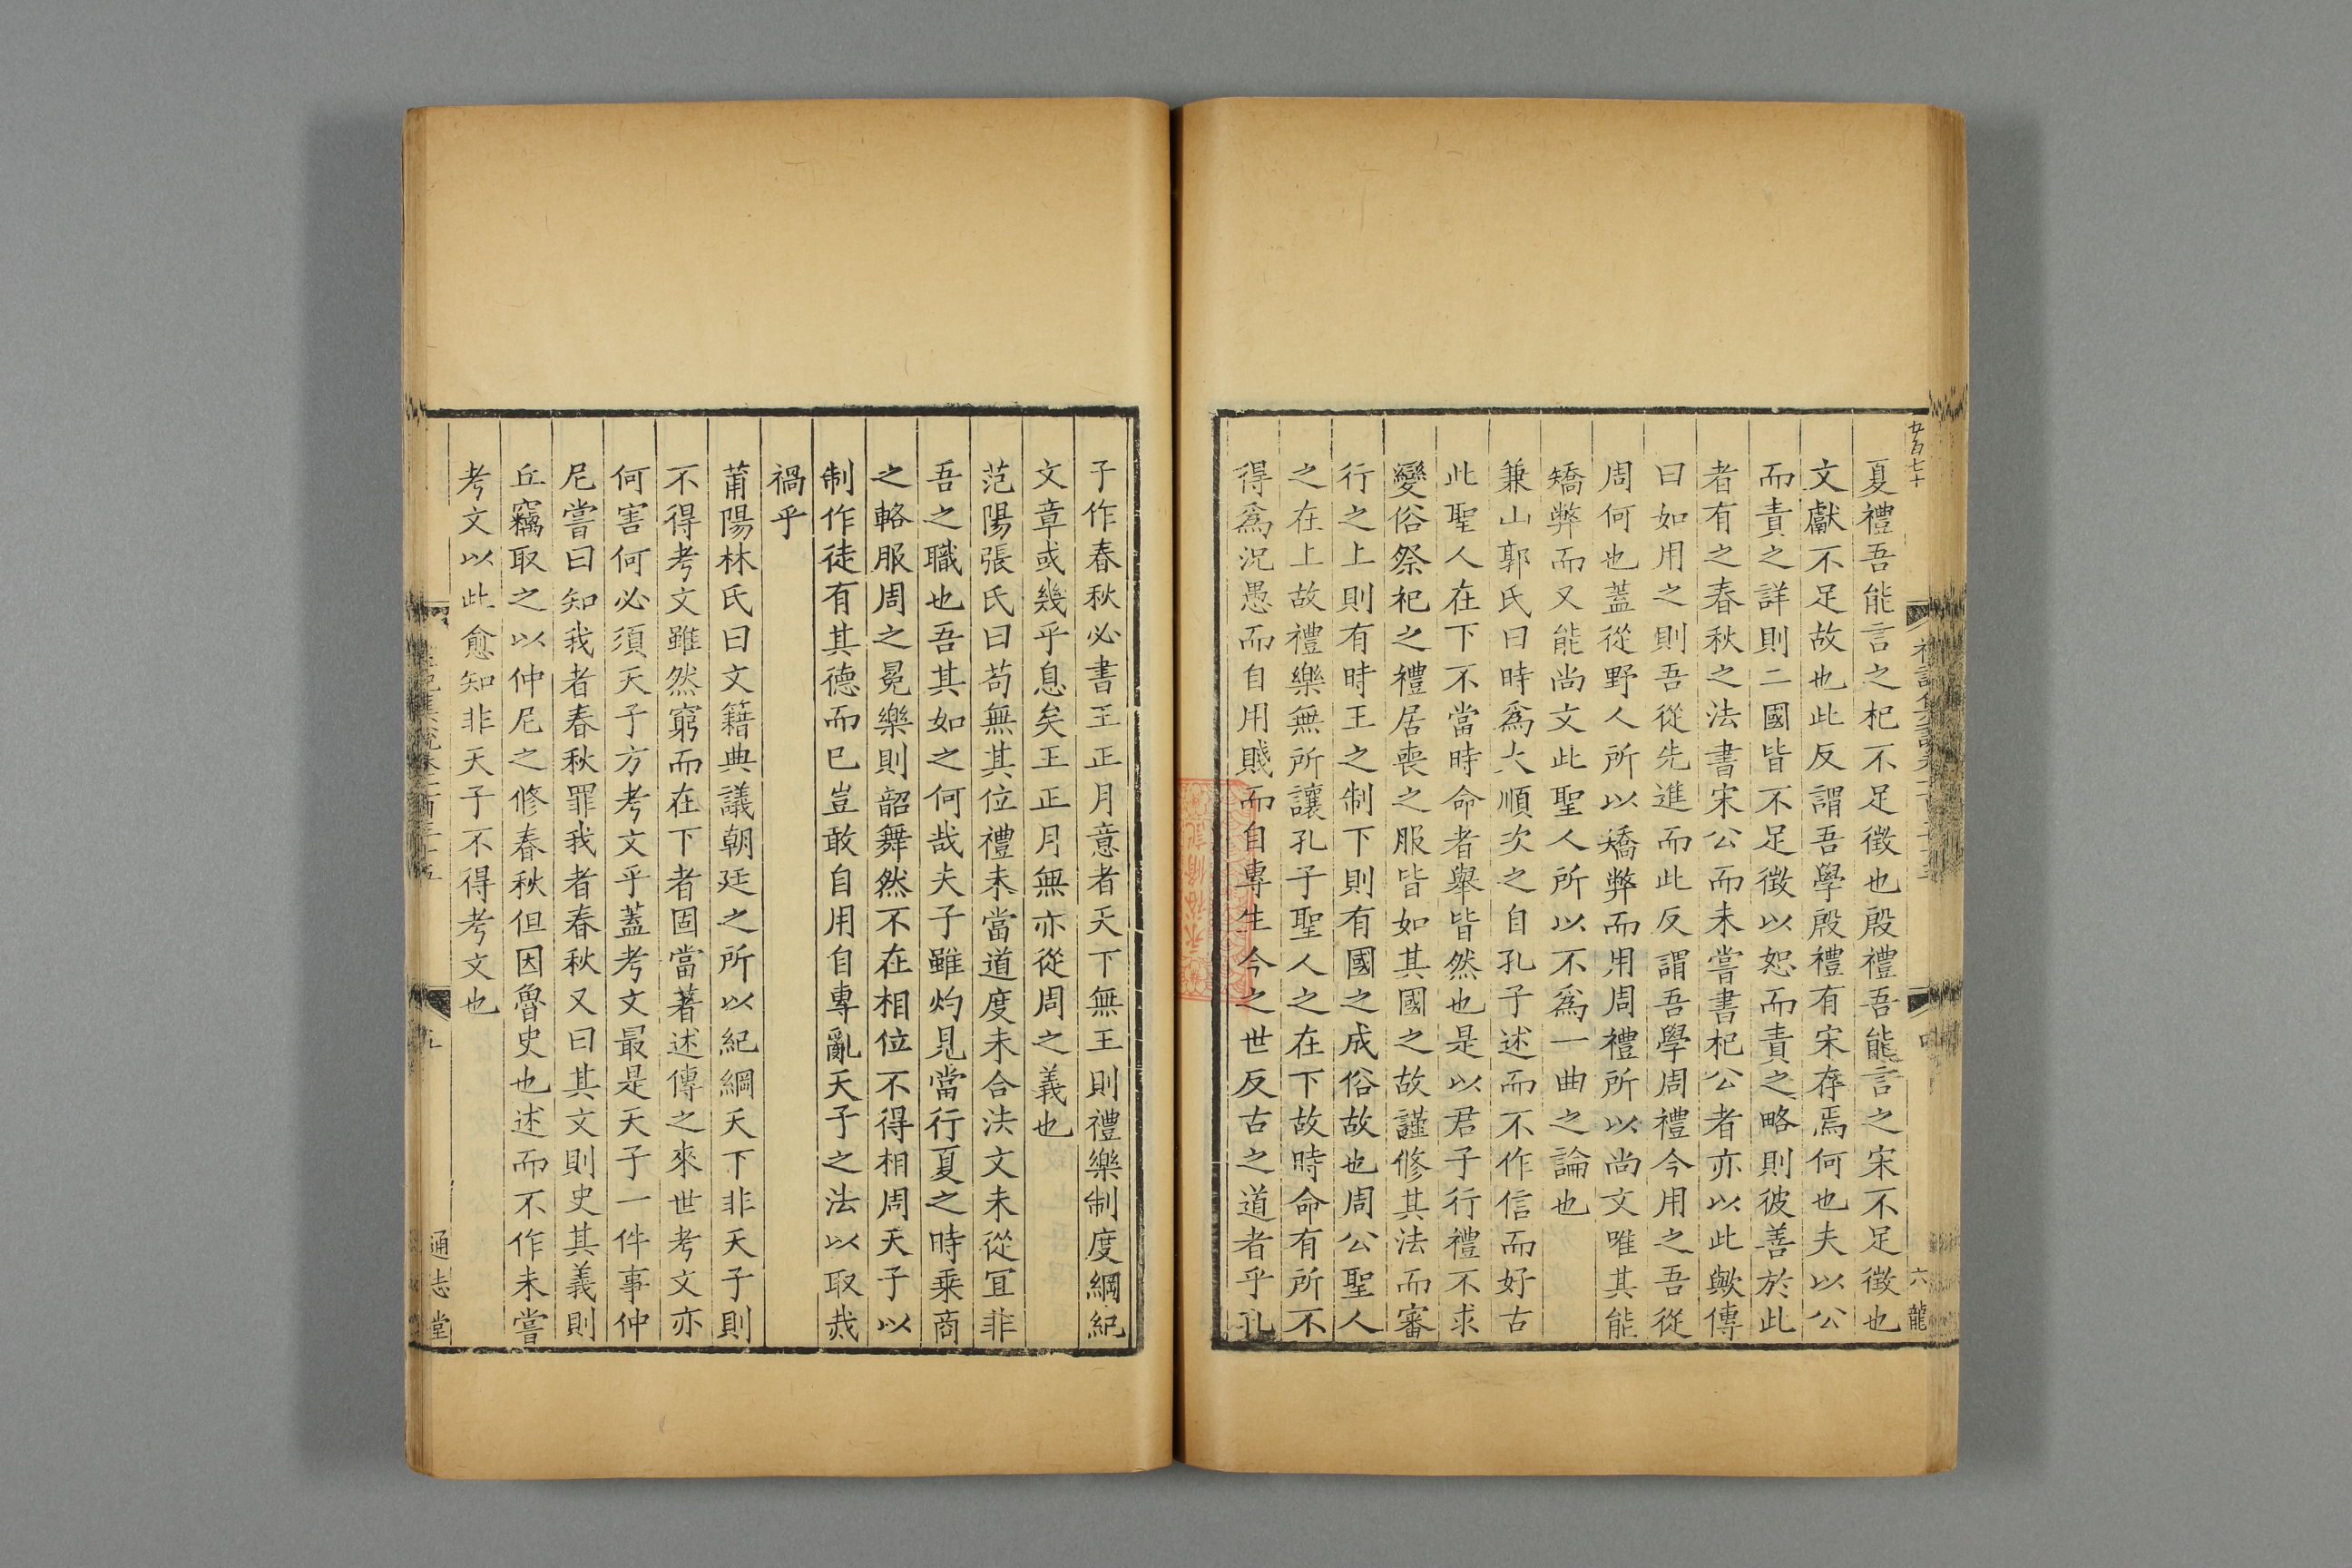 夏禮吾能言之杞不足徵也殷禮吾能言之宋不足徵也
文獻不足故也此反謂吾學殷禮有宋存焉何也夫以公
而責之詳則二國皆不足徵以恕而責之略則彼善於此
者有之春秋之法書宋公而未嘗書杞公者亦以此歟傳
曰如用之則吾從先進而此反謂吾學周禮今用之吾從
周何也蓋從野人所以矯弊而用周禮所以尚文唯其能
矯弊而又能尚文此聖人所以不爲一曲之論也
兼山郭氏曰時爲大順次之自孔子述而不作信而好古
此聖人在下不當時命者舉皆然也是以君子行禮不求
變俗祭祀之禮居喪之服皆如其國之故謹修其法而審
行之上則有時王之制下則有國之成俗故也周公聖人
之在上故禮樂無所讓孔子聖人之在下故時命有所不
得爲況愚而自用賤而自專生今之世反古之道者乎孔
六 龍
子作春秋必書王正月意者天下無王則禮樂制度綱紀
文章或幾乎息矣王正月無亦從周之義也
范陽張氏曰苟無其位禮未當道度未合法文未從宜非
吾之職也吾其如之何哉夫子雖灼見當行夏之時乗商
之輅服周之冕樂則韶舞然不在相位不得相周天子以
制作徒有其德而已豈敢自用自專亂天子之法以取烖
禍乎
莆陽林氏曰文籍典議朝廷之所以紀綱天下非天子則
不得考文雖然窮而在下者固當著述傳之來世考文亦
何害何必須天子方考文乎蓋考文最是天子一件事仲
尼嘗曰知我者春秋罪我者春秋又曰其文則史其義則
丘竊取之以仲尼之修春秋但因魯史也述而不作未嘗
考文以此愈知非天子不得考文也
通志堂